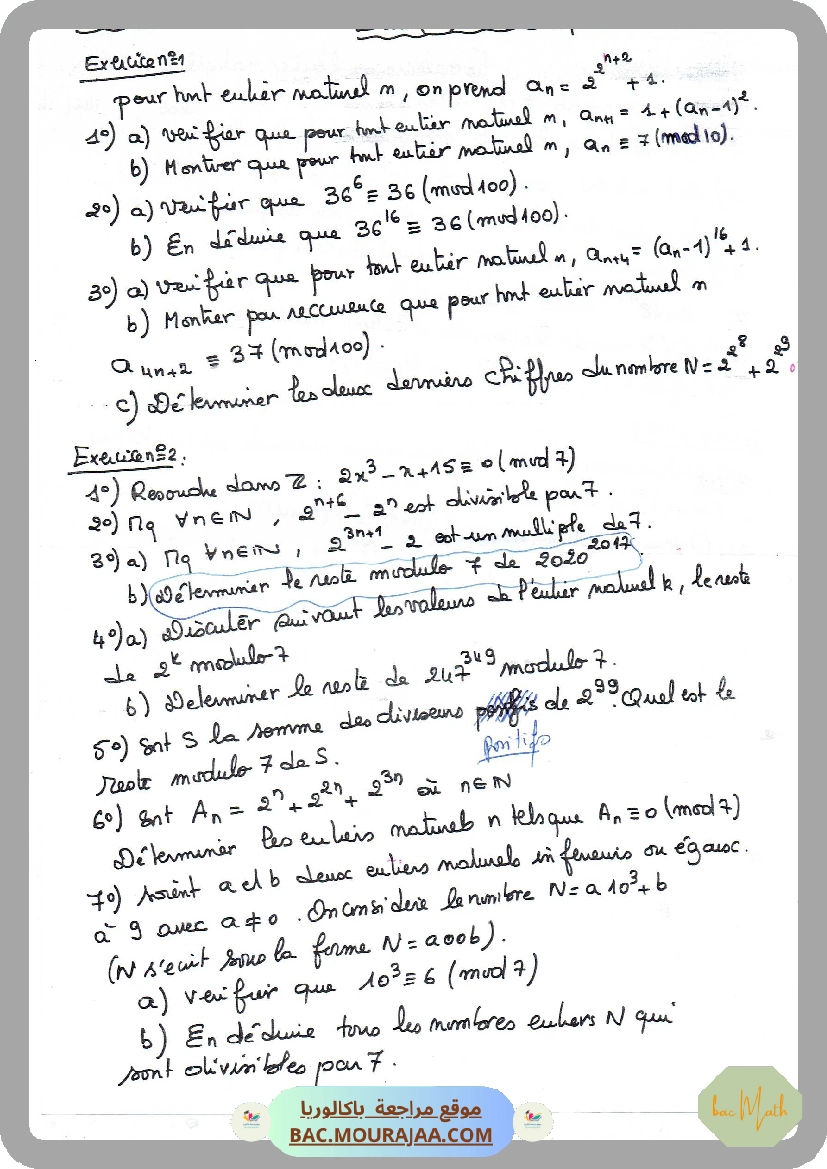 Exercice n°1
pour tout entier naturel n, on prend aₙ = 2^{2^{n+2}} + 1.
1°) a) vérifier que pour tout entier naturel n, aₙ₊₁ = 1 + (aₙ - 1)².
b) Montrer que pour tout entier naturel n, aₙ ≡ 7 (mod 10).
2°) a) Vérifier que 36⁶ ≡ 36 (mod 100).
b) En déduire que 36¹⁶ ≡ 36 (mod 100).
3°) a) vérifier que pour tout entier naturel n, aₙ₊₄ = (aₙ - 1)¹⁶ + 1.
b) Montrer par reccurence que pour tout entier naturel n
a₄ₙ₊₂ ≡ 37 (mod 100).
c) Déterminer les deux derniers chiffres du nombre N = 2^{2^8} + 2^{2^9}.
Exercice n°2:
1°) Resoudre dans ℤ : 2x³ - x + 15 ≡ 0 (mod 7)
2°) Mq ∀n∈ℕ, 2^{n+6} - 2ⁿ est divisible par 7.
3°) a) Mq ∀n∈ℕ, 2^{3n+1} - 2 est un multiple de 7.
b) Déterminer le reste modulo 7 de 2020^{2017}.
4°) a) Discuter suivant les valeurs de l'entier naturel k, le reste
de 2ᵏ modulo 7
b) Determiner le reste de 247^{349} modulo 7.
5°) Soit S la somme des diviseurs positifs de 2⁹⁹. Quel est le
reste modulo 7 de S.
6°) Soit Aₙ = 2ⁿ + 2²ⁿ + 2³ⁿ où n∈ℕ
Déterminer les entiers naturels n tels que Aₙ ≡ 0 (mod 7)
7°) soient a et b deux entiers naturels inferieurs ou égaux.
à 9 avec a ≠ 0. On considere le nombre N = a 10³ + b
(N s'ecrit sous la forme N = a00b).
a) vérifier que 10³ ≡ 6 (mod 7)
b) En déduire tous les nombres entiers N qui
sont divisibles par 7.
موقع مراجعة باكالوريا
BAC.MOURAJAA.COM
bac Math